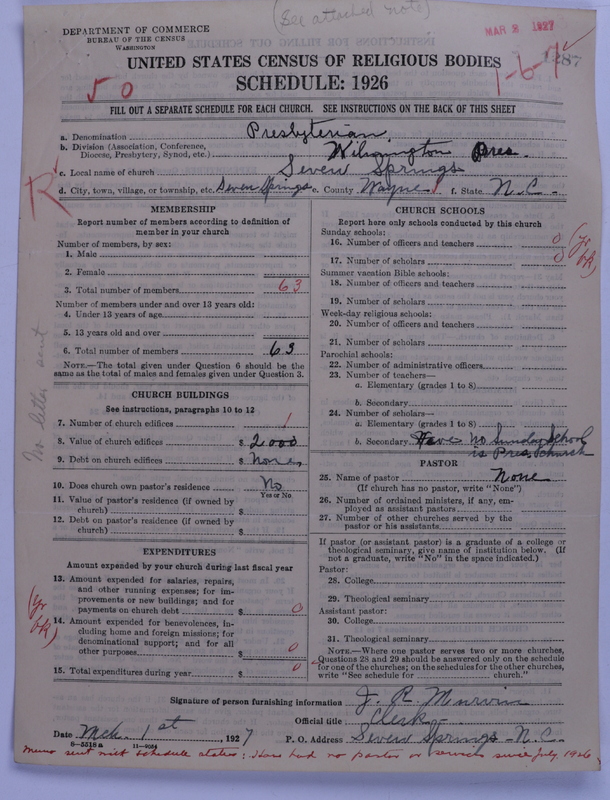 (See attached note)
DEPARTMENT OF COMMERCE
BUREAU OF THE CENSUS
WASHINGTON
MAR 2 1927
1287
UNITED STATES CENSUS OF RELIGIOUS BODIES
1-6-7
SCHEDULE: 1926
50
FILL OUT A SEPARATE SCHEDULE FOR EACH CHURCH. SEE INSTRUCTIONS ON THE BACK OF THIS SHEET
a. Denomination Presbyterian
b. Division (Association, Conference, Diocese, Presbytery, Synod, etc.) Wilmington Pres.
c. Local name of church Seven Springs
d. City, town, village, or township, etc. Seven Springs e. County Wayne f. State N.C.
R
MEMBERSHIP
Report number of members according to definition of
member in your church
Number of members, by sex:
1. Male
2. Female
3. Total number of members 63
Number of members under and over 13 years old:
4. Under 13 years of age
5. 13 years old and over
6. Total number of members 63
NOTE.—The total given under Question 6 should be
same as the total of males and females given under Question 3.
No letter sent
CHURCH BUILDINGS
See instructions, paragraphs 10 to 12
7. Number of church edifices 1
8. Value of church edifices $ 2000
9. Debt on church edifices $ None,
10. Does church own pastor's residence No
Yes or No
11. Value of pastor's residence (if owned by
church) $
12. Debt on pastor's residence (if owned by
church) $
EXPENDITURES
Amount expended by your church during last fiscal year
13. Amount expended for salaries, repairs,
and other running expenses; for im-
provements or new buildings; and for
payments on church debt $ 0
(yr bk)
14. Amount expended for benevolences, in-
cluding home and foreign missions; for
denominational support; and for all
other purposes $ 0
15. Total expenditures during year $ 0
CHURCH SCHOOLS
Report here only schools conducted by this church
Sunday schools:
16. Number of officers and teachers 0
17. Number of scholars 0
(yr bk)
Summer vacation Bible schools:
18. Number of officers and teachers
19. Number of scholars
Week-day religious schools:
20. Number of officers and teachers
21. Number of scholars
Parochial schools:
22. Number of administrative officers
23. Number of teachers—
a. Elementary (grades 1 to 8)
b. Secondary
24. Number of scholars—
a. Elementary (grades 1 to 8)
b. Secondary Have no Sunday School
in Pres. church
PASTOR
25. Name of pastor None
(If church has no pastor, write "None")
26. Number of ordained ministers, if any, em-
ployed as assistant pastors
27. Number of other churches served by the
pastor or his assistants
If pastor (or assistant pastor) is a graduate of a college or
theological seminary, give name of institution below. (If
not a graduate, write "No" in the space indicated.)
Pastor:
28. College
29. Theological seminary
Assistant pastor:
30. College
31. Theological seminary
NOTE.—Where one pastor serves two or more churches,
Questions 28 and 29 should be answered only on the schedule
for one of the churches; on the schedules for the other churches,
write "See schedule for church."
Signature of person furnishing information J. R.
Official title Clerk
Date Mch. 1st, 1927 P. O. Address Seven Springs N.C.
8-5518a 11-9054
Memo sent with schedule states: Have had no pastor or services since July 1926